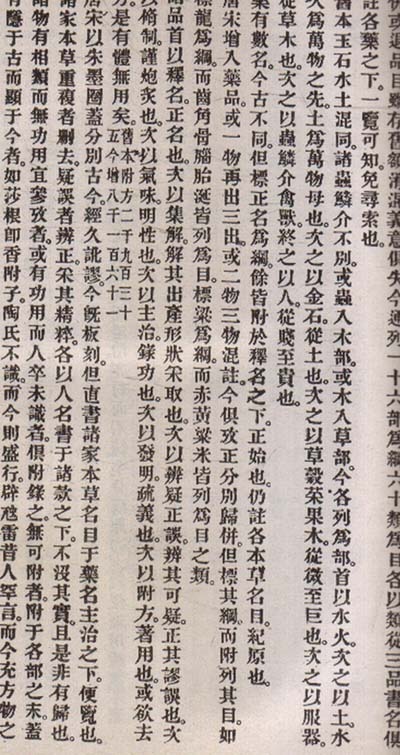 或退品目雖存舊額淆混義意俱失今通列一十六部爲綱六十類爲目各以類從三品書名俱
註各藥之下。一覽可知免尋索也。
舊本玉石水土混同。諸蟲鱗介不別。或蟲入木部。或木入草部。今各列爲部。首以水火。次之以土。水
火爲萬物之先。土爲萬物母也。次之以金石。從土也。次之以草穀菜果木。從微至巨也。次之以服器。
從草木也。次之以蟲鱗介禽獸。終之以人。從賤至貴也。
藥有數名。今古不同。但標正名爲綱。餘皆附於釋名之下。正始也。仍註各本草名目。紀原也。
唐宋增入藥品。或一物再出三出。或二物三物混註。今俱攷正。分別歸併。但標其綱。而附列其目。如
標龍爲綱。而齒角骨腦胎涎皆列爲目。標粱爲綱。而赤黃粱米皆列爲目之類。
諸品首以釋名。正名也。次以集解。解其出產形狀采取也。次以辨疑正誤。辨其可疑。正其謬誤也。次
以脩制。謹炮炙也。次以氣味。明性也。次以主治。錄功也。次以發明。疏義也。次以附方。著用也。或欲去
方。是有體無用矣。舊本附方二千九百三十
五今增八千一百六十一
唐宋以朱墨圈蓋分別古今。經久訛謬。今旣板刻。但直書諸家本草名目于藥名主治之下。便覽也。
諸家本草。重複者刪去。疑誤者辨正。采其精粹。各以人名書于諸款之下。不沒其實。且是非有歸也。
諸物有相類而無功用宜參攷者。或有功用而人卒未識者。俱附錄之。無可附者。附于各部之末。蓋
有隱于古而顯于今者。如莎根卽香附子。陶氏不識。而今則盛行。辟虺雷。昔人罕言。而今充方物之